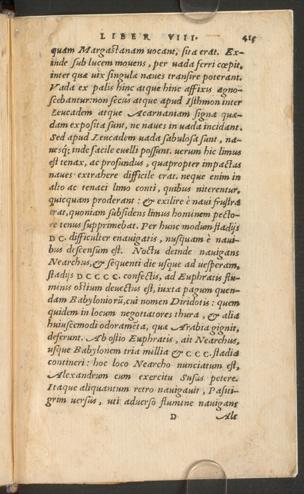 LIBER VIII. 415
quam Margastanam uocant, sita erat. Ex-
inde sub lucem mouens, per uada ferri cœpit,
inter quæ uix singulæ naues transire poterant.
Vada ex palis hinc atque hinc affixis agno-
scebantur: non secus atque apud Isthmon inter
Leucadem atque Acarnaniam signa quæ-
dam exposita sunt, ne naues in uada incidant.
Sed apud Leucadem uada sabulosa sunt, na-
uesq; inde facile euelli possunt. uerum hic limus
est tenax, ac profundus, quapropter impactas
naues extrahere difficile erat. neque enim in
alto ac tenaci limo conti, quibus niterentur,
quicquam proderant: & exilire è naui frustrà
erat, quoniam subsidens limus hominem pecto-
re tenus supprimebat. Per hunc modum stadijs
DC. difficulter enauigatis, nusquam è naui-
bus descensum est. Noctu deinde nauigans
Nearchus, & sequenti die usque ad uesperam,
stadijs DCCCC. confectis, ad Euphratis flu-
minis ostium deuectus est, iuxta pagum quen-
dam Babyloniorũ, cui nomen Diridotis: quem
quidem in locum negotiatores thura, & alia
huiuscemodi odoramẽta, quæ Arabia gignit,
deferunt. Ab ostio Euphratis, ait Nearchus,
usque Babylonem tria millia & CCC. stadia
contineri: hoc loco Nearcho nunciatum est,
Alexandrum cum exercitu Susas petere.
Itaque aliquantum retro nauigauit, Pasiti-
grim uersus, uti aduerso flumine nauigans
D Ale